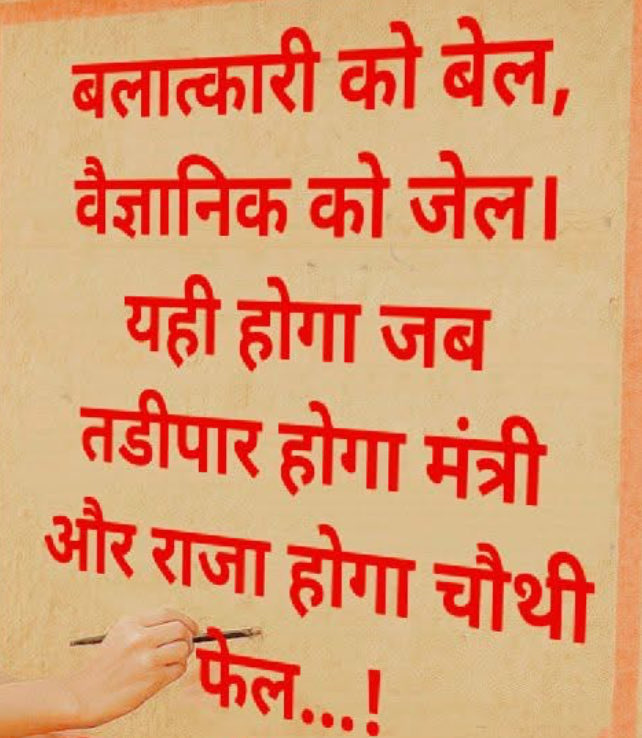 बलात्कारी को बेल,
वैज्ञानिक को जेल।
यही होगा जब
तडीपार होगा मंत्री
और राजा होगा चौथी
फेल...!